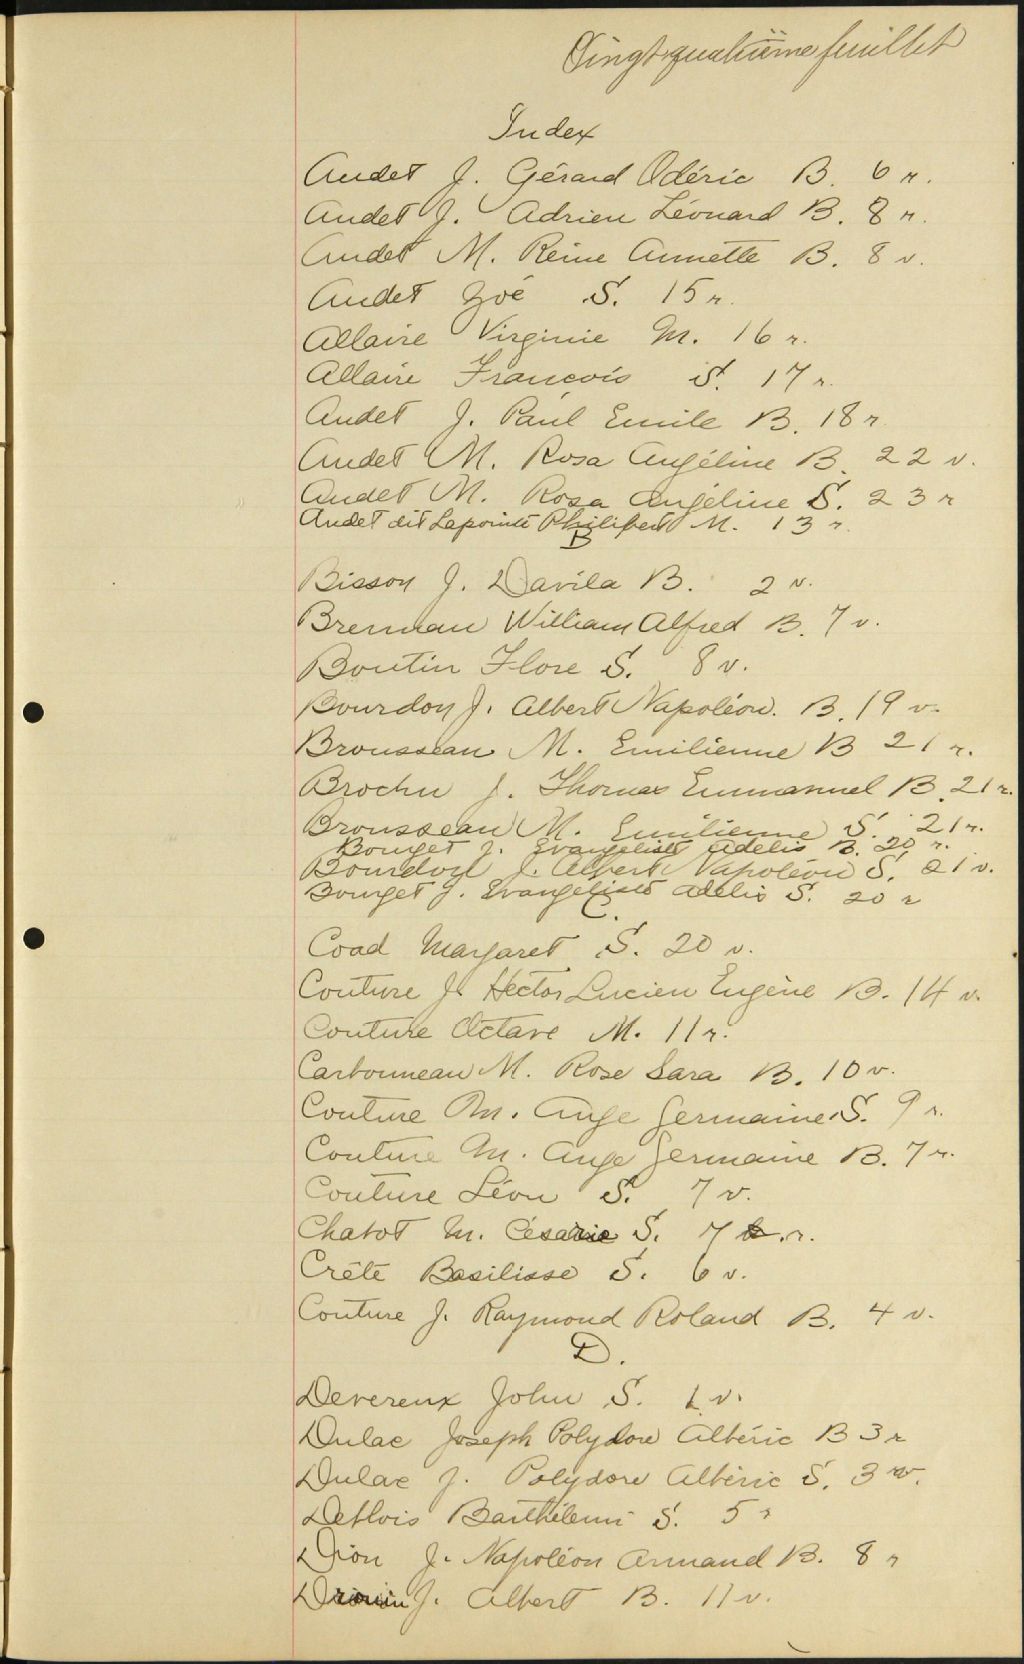 Vingt quatrième feuillet
Index
Audet J. Gérard Odéric B. 6 r.
Audet J. Adrien Léonard B. 8 r.
Audet M. Reine Annette B. 8 v.
Audet Zoé S. 15 r.
Allaire Virginie M. 16 r.
Allaire François S. 17 r.
Audet J. Paul Emile B. 18 r
Audet M. Rosa Angéline B. 22 v.
Audet M. Rosa Angéline S. 23 r
Audet dit Lapointe Philibert M. 13 r.
B
Bisson J. Davila B. 2 v.
Brennan William Alfred B. 7 v.
Boutin Flore S. 8 v.
Bourdon J. Albert Napoléon. B. 19 v.
Brousseau M. Emilienne B 21 r.
Brochu J. Thomas Emmanuel B. 21 r.
Brousseau M. Emilienne S. 21 r.
Bouget J. Evangeliste Adelis B. 20 r.
Bourdon J. Albert Napoléon S. 21 v.
Bouget J. Evangéliste Adelis S. 20 r
C.
Coad Margaret S. 20 v.
Couture J. Hector Lucien Eugène B. 14 v.
Couture Octave M. 11 r.
Carbonneau M. Rose Sara B. 10 v.
Couture M. Ange Germaine S. 9 r.
Couture M. Ange Germaine B. 7 r.
Couture Léon S. 7 v.
Chabot M. Césarie S. 7 r.
Crête Basilisse S. 6 v.
Couture J. Raymond Roland B. 4 v.
D.
Devereux John S. 1 v.
Dulac Joseph Polydore Albéric B 3 r
Dulac J. Polydore Albéric S. 3 v.
Deblois Barthélemi S. 5 r
Dion J. Napoléon Armand B. 8 r
Drouin J. Albert B. 11 v.